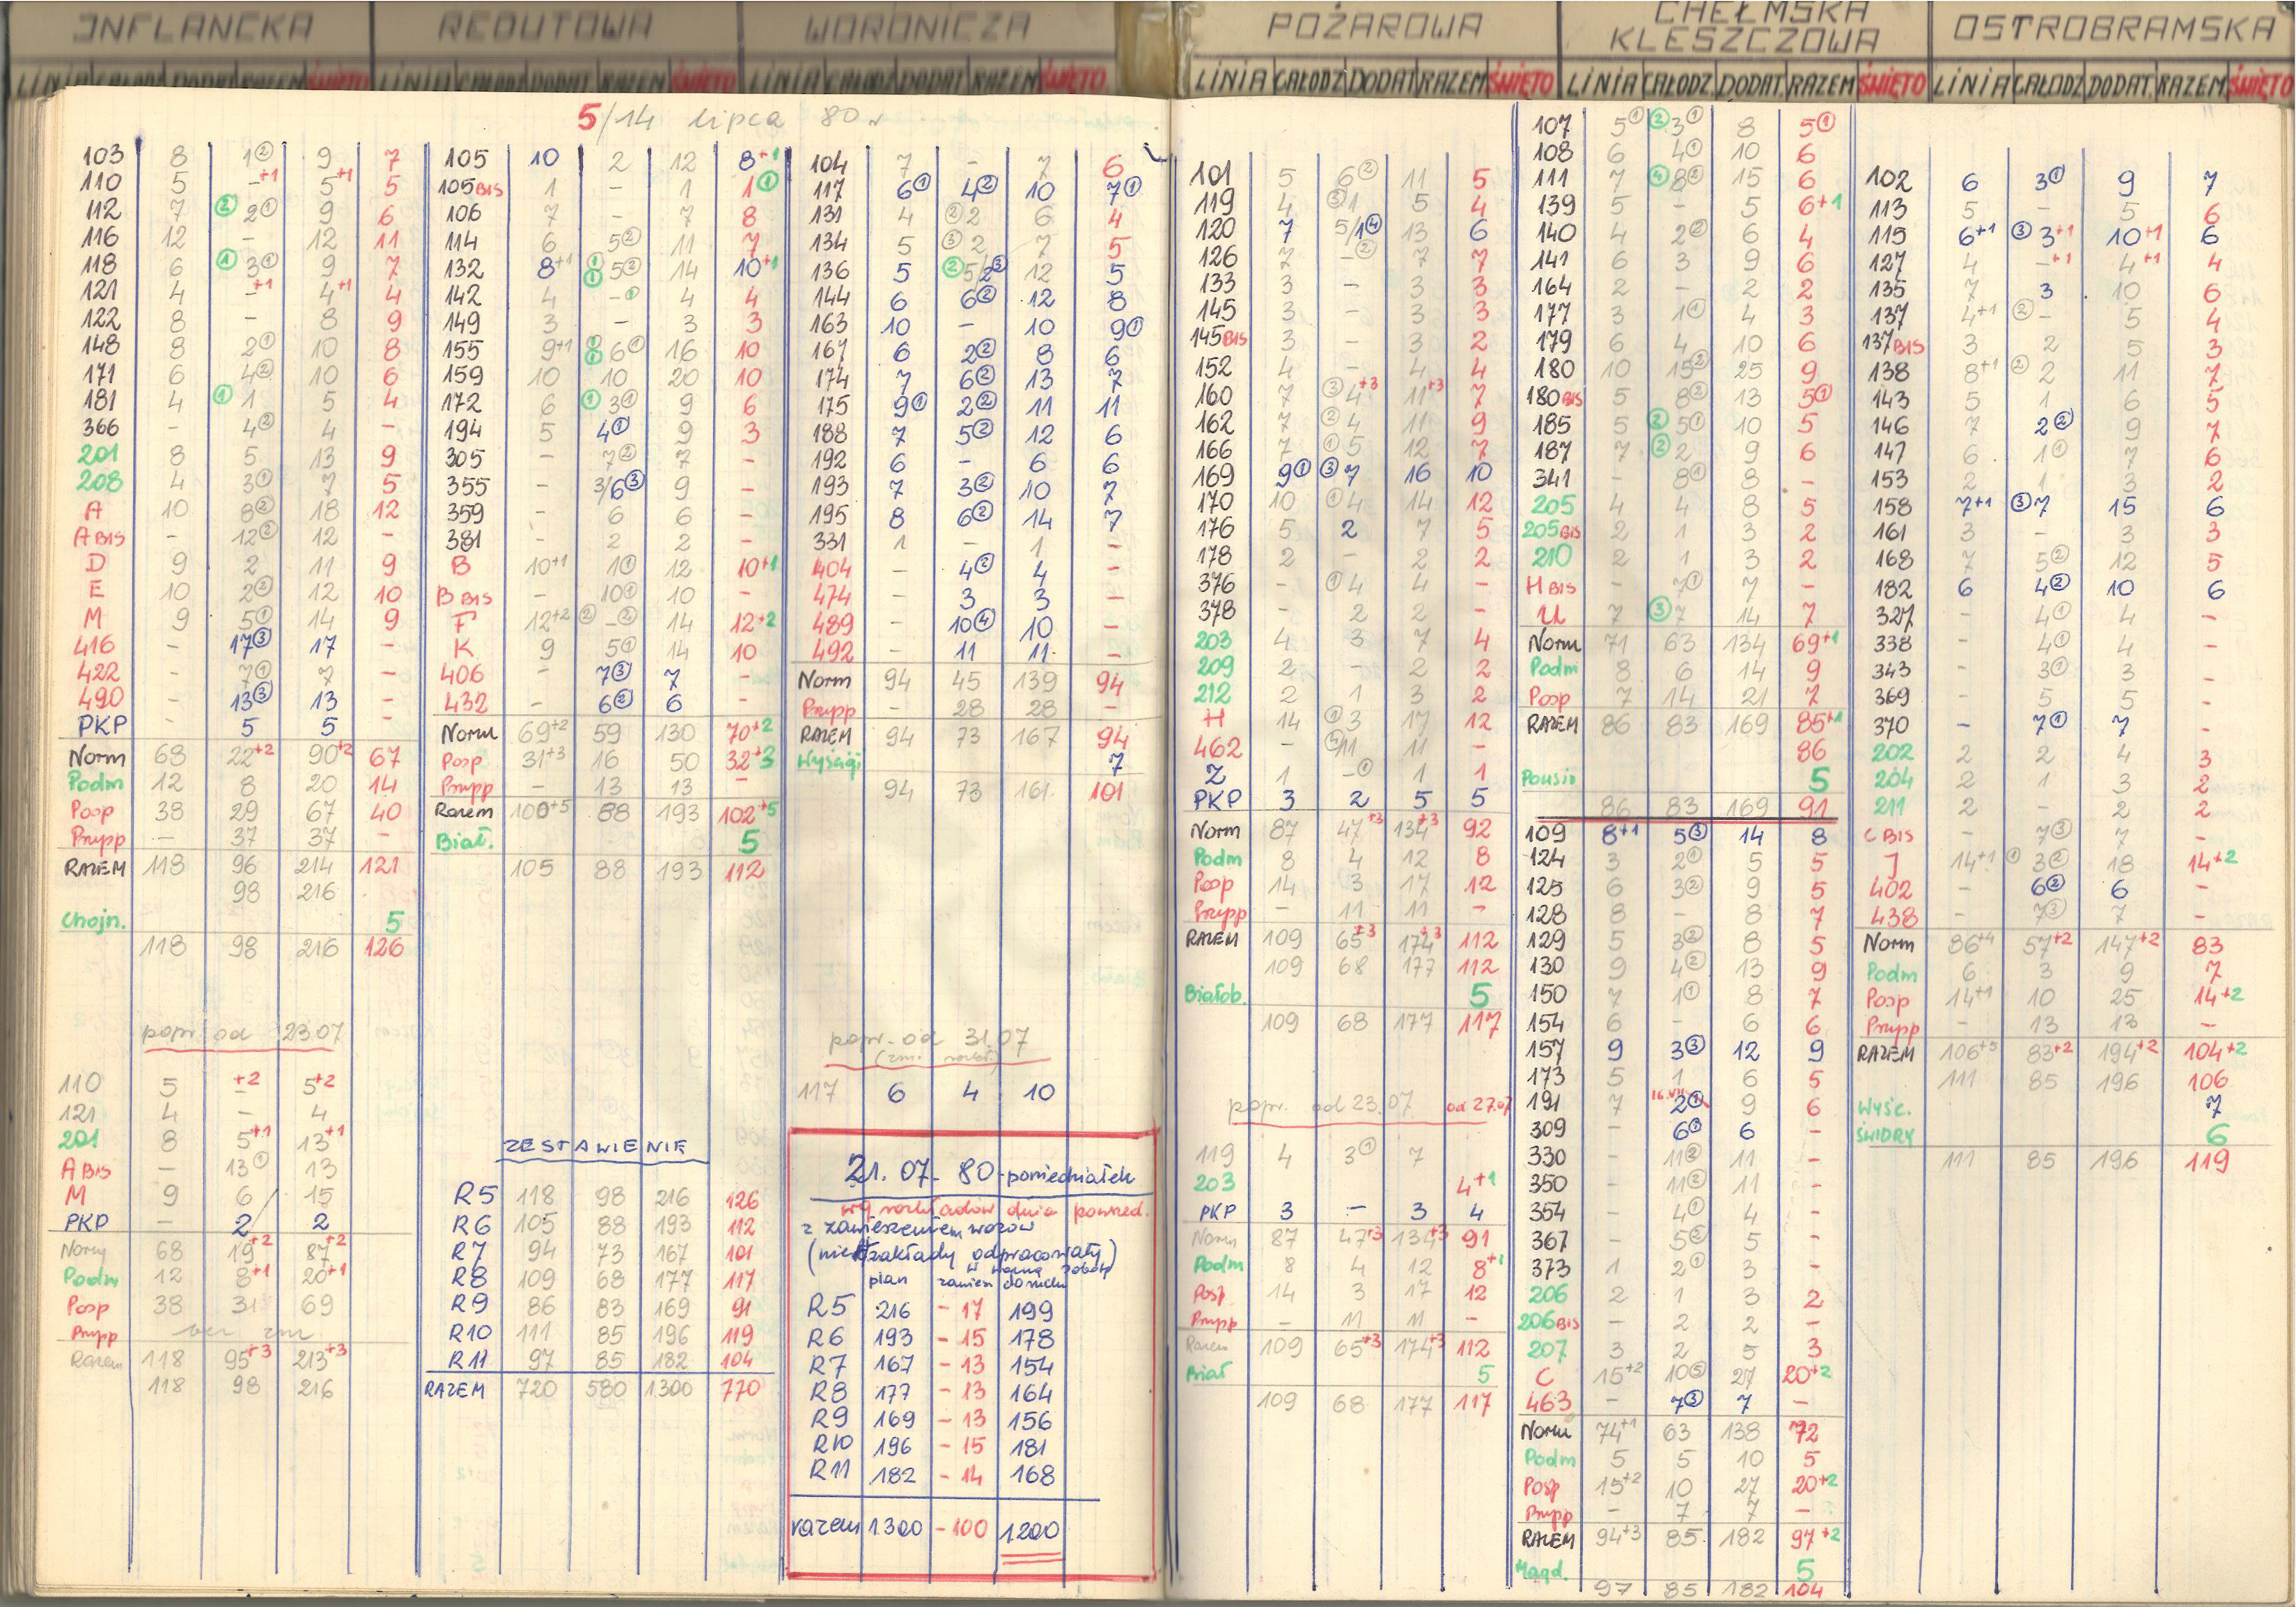 INFLANCKA REDUTOWA WORONICZA POŻAROWA CHEŁMSKA KLESZCZOWA OSTROBRAMSKA
LINIA CAŁODZ DODAT RAZEM ŚWIĘTO LINIA CAŁODZ DODAT RAZEM ŚWIĘTO LINIA CAŁODZ DODAT RAZEM ŚWIĘTO LINIA CAŁODZ DODAT RAZEM ŚWIĘTO LINIA CAŁODZ. DODAT. RAZEM ŚWIĘTO LINIA CAŁODZ DODAT. RAZEM ŚWIĘTO
5/14 lipca 80 r
103 8 1② 9 7
110 5 -+1 5+1 5
112 7 ② 2① 9 6
116 12 - 12 11
118 6 ① 3① 9 7
121 4 -+1 4+1 4
122 8 - 8 9
148 8 2① 10 8
171 6 4② 10 6
181 4 ① 1 5 4
366 - 4② 4 -
201 8 5 13 9
208 4 3① 7 5
A 10 8② 18 12
A BIS - 12② 12 -
D 9 2 11 9
E 10 2② 12 10
M 9 5① 14 9
416 - 17③ 17 -
422 - 7① 7 -
490 - 13③ 13 -
PKP - 5 5 -
Norm 68 22+2 90+2 67
Podm 12 8 20 14
Posp 38 29 67 40
Prupp - 37 37 -
RAZEM 118 96 214 121
98 216
Chojn. 5
118 98 216 126
popr. od 23.07
110 5 -+2 5+2
121 4 - 4
201 8 5+1 13+1
A BIS - 13① 13
M 9 6 15
PKP - 2 2
Norm 68 19+2 87+2
Podm 12 8+1 20+1
Posp 38 31 69
Prupp bez zm
Razem 118 95+3 213+3
118 98 216
105 10 2 12 8+1
105 BIS 1 - 1 1①
106 7 - 7 8
114 6 5② 11 7
132 8+1 ① ① 5② 14 10+1
142 4 -① 4 4
149 3 - 3 3
155 9+1 6① 16 10
159 10 10 20 10
172 6 ① 3① 9 6
194 5 4① 9 3
305 - 7② 7 -
355 - 3/6③ 9 -
359 - 6 6 -
381 - 2 2 -
B 10+1 1① 12 10+1
B BIS - 10① 10 -
F 12+2 ② -② 14 12+2
K 9 5① 14 10
406 - 7③ 7 -
432 - 6② 6 -
Norm 69+2 59 130 70+2
Posp 31+3 16 50 32+3
Prupp - 13 13 -
Razem 100+5 88 193 102+5
Biał. 5
105 88 193 112
ZESTAWIENIE
R5 118 98 216 126
R6 105 88 193 112
R7 94 73 167 101
R8 109 68 177 117
R9 86 83 169 91
R10 111 85 196 119
R11 97 85 182 104
RAZEM 720 580 1300 770
104 7 - 7 6
117 6① 4② 10 7①
131 4 ② 2 6 4
134 5 ③ 2 7 5
136 5 ② 5/2③ 12 5
144 6 6② 12 8
163 10 - 10 9①
167 6 2② 8 6
174 7 6② 13 7
175 9① 2② 11 11
188 7 5② 12 6
192 6 - 6 6
193 7 3② 10 7
195 8 6② 14 7
331 1 - 1 -
404 - 4② 4 -
474 - 3 3 -
489 - 10④ 10 -
492 - 11 11 -
Norm 94 45 139 94
Prupp - 28 28 -
RAZEM 94 73 167 94
Wyścigi 7
94 73 161 101
popr. od 31.07
(zm. rozkł.)
117 6 4 10
21.07-80-poniedziałek
wg rozkładów dnia powsed.
z zawieszeniem wozów
zakłady odpracowały)
w wolną sobotę
plan zawiesz do ruchu
R5 216 -17 199
R6 193 -15 178
R7 167 -13 154
R8 177 -13 164
R9 169 -13 156
R10 196 -15 181
R11 182 -14 168
razem 1300 -100 1200
101 5 6② 11 5
119 4 ③ 1 5 4
120 7 5/1④ 13 6
126 7 -② 7 7
133 3 - 3 3
145 3 - 3 3
145 BIS 3 - 3 2
152 4 - 4 4
160 7 ③ 4+3 11+3 7
162 7 ② 4 11 9
166 7 ① 5 12 7
169 9① ③ 7 16 10
170 10 ① 4 14 12
176 5 2 7 5
178 2 - 2 2
376 - ① 4 4 -
378 - 2 2 -
203 4 3 7 4
209 2 - 2 2
212 2 1 3 2
H 14 ① 3 17 12
462 - ④ 11 11 -
Z 1 -① 1 1
PKP 3 2 5 5
Norm 87 47+3 134+3 92
Podm 8 4 12 8
Posp 14 3 17 12
Prupp - 11 11 -
RAZEM 109 65+3 174+3 112
109 68 177 112
Białob. 5
109 68 177 117
popr. od 23.07 od 27.07
119 4 3① 7
203 4+1
PKP 3 - 3 4
Norm 87 47+3 134+3 91
Podm 8 4 12 8+1
Posp 14 3 17 12
Prupp - 11 11 -
Razem 109 65+3 174+3 112
Biał 5
109 68 177 117
107 5① ② 3① 8 5①
108 6 4① 10 6
111 7 ④ 8② 15 6
139 5 - 5 6+1
140 4 2② 6 4
141 6 3 9 6
164 2 - 2 2
177 3 1① 4 3
179 6 4 10 6
180 10 15② 25 9
180 BIS 5 8② 13 5①
185 5 ② 5① 10 5
187 7 ② 2 9 6
341 - 8① 8 -
205 4 4 8 5
205 BIS 2 1 3 2
210 2 1 3 2
H BIS - 7① 7 -
U 7 ③ 7 14 7
Norm 71 63 134 69+1
Podm 8 6 14 9
Posp 7 14 21 7
RAZEM 86 83 169 85+1
86
5
86 83 169 91
109 8+1 5③ 14 8
124 3 2① 5 5
125 6 3② 9 5
128 8 - 8 7
129 5 3② 8 5
130 9 4② 13 9
150 7 1① 8 7
154 6 - 6 6
157 9 3③ 12 9
173 5 1 6 5
191 7 16.VII 2① 9 6
309 - 6① 6 -
330 - 11② 11 -
350 - 11② 11 -
354 - 4① 4 -
367 - 5② 5 -
373 1 2① 3 -
206 2 1 3 2
206 BIS - 2 2 -
207 3 2 5 3
C 15+2 10⑤ 27 20+2
463 - 7③ 7 -
Norm 74+1 63 138 72
Podm 5 5 10 5
Posp 15+2 10 27 20+2
Prupp - 7 7 -
RAZEM 94+3 85 182 97+2
Magd. 5
97 85 182 104
102 6 3① 9 7
113 5 - 5 6
115 6+1 ③ 3+1 10+1 6
127 4 -+1 4+1 4
135 7 3 10 6
137 4+1 ② - 5 4
137 BIS 3 2 5 3
138 8+1 ② 2 11 7
143 5 1 6 5
146 7 2② 9 7
147 6 1① 7 6
153 2 1 3 2
158 7+1 ③ 7 15 6
161 3 - 3 3
168 7 5② 12 5
182 6 4② 10 6
327 - 4① 4 -
338 - 4① 4 -
343 - 3① 3 -
369 - 5 5 -
370 - 7① 7 -
202 2 2 4 3
204 2 1 3 2
211 2 - 2 2
C BIS - 7③ 7 -
J 14+1 ① 3② 18 14+2
402 - 6② 6 -
438 - 7③ 7 -
Norm 86+4 57+2 147+2 83
Podm 6 3 9 7
Posp 14+1 10 25 14+2
Prupp - 13 13 -
RAZEM 106+5 83+2 194+2 104+2
111 85 196 106
Wyśc. 7
ŚWIDRY 6
111 85 196 119